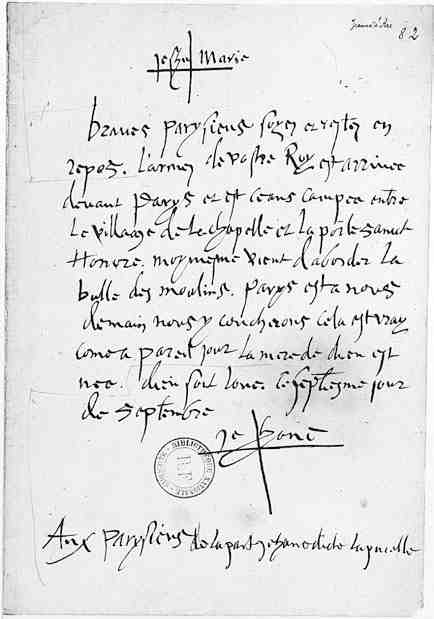 Jeanne d'Arc
82
Jesus Maria
braves parysiens soyez et restez en
repoz. L'armee de vostre Roy est arrivee
devant parys et est ceans campee entre
Le village de Lachapelle et La porte Sainct
Honore. moymesme vient d'aborder La
butte des moulins. parys est a nous
demain nous y coucherons cela est vray
come a pareil jour La mere de dieu est
nee. dieu soit loue. ce septiesme jour
de Septembre
BIBLIOTHEQUE NATIONALE
Aux parysiens de la part Jehanne dicte La pucelle